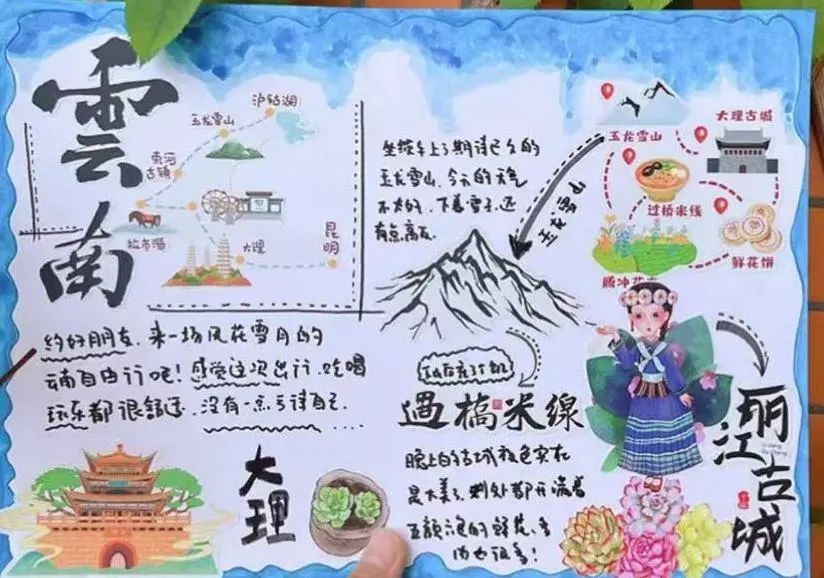 雲南
泸沽湖
玉龙雪山
束河
古镇
拉市海
大理
昆明
约好朋友，来一场风花雪月的
云南自由行吧！感觉这次出行，吃喝
玩乐都很舒适，没有一点亏待自己....
大理
坐缆车上了期待已久的
玉龙雪山，今天的天气
不太好，下着雪子，还
有点高反
玉龙雪山
玉龙雪山
大理古城
过桥米线
鲜花饼
腾冲
過橋米線
晚上的古城夜色实在
是太美了，到处都开满着
五颜六色的鲜花，多
肉也很多！
丽江古城